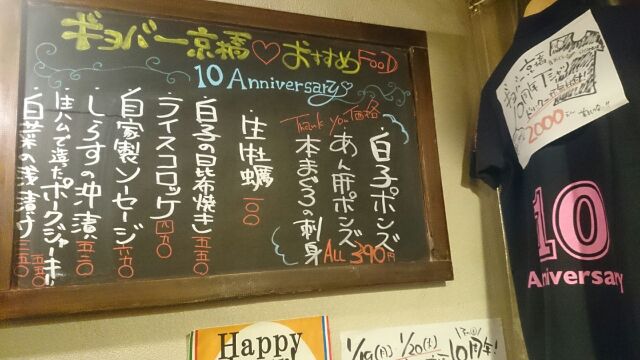 ギョバー京橋♡おすすめFOOD
10 Anniversary
Thank You 価格
白子ポンズ
あん肝ポンズ
本まぐろの刺身
ALL 390円
生牡蠣 一〇〇
白子の昆布焼き 五五〇
ライスコロッケ 四九〇
自家製ソーセージ 五五〇
しらすの沖漬 五二〇
生ハムで造たポークジャーキー 五五〇
白菜の浅漬け 三五〇
京橋
10周年Tシャツ
2000
10
Anniversary
Happy
1/19(月) 1/20(火)
10周年!